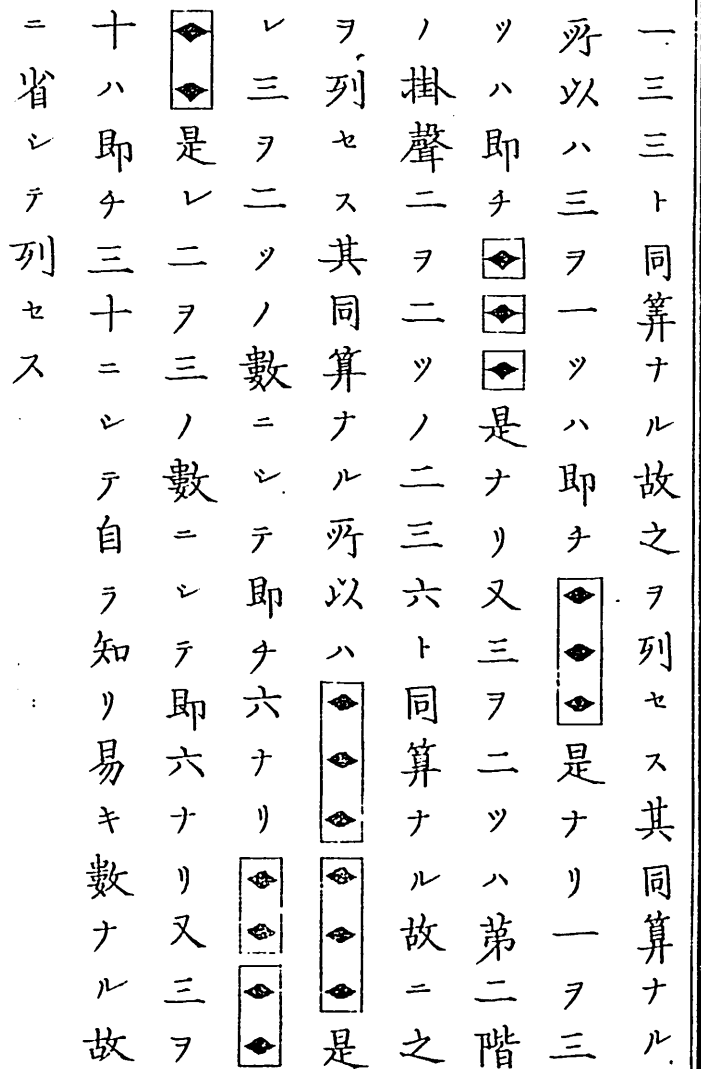 一三三ト同筭ナル故之ヲ列セス其同算ナル
所以ハ三ヲ一ツハ即チ◆◆◆是ナリ一ヲ三
ツハ即チ◆◆◆是ナリ又三ヲ二ツハ第二階
ノ掛聲二ヲ二ツノ二三六ト同算ナル故ニ之
ヲ列セス其同算ナル所以ハ◆◆◆◆◆◆是
レ三ヲ二ツノ數ニシテ即チ六ナリ◆◆◆◆
◆◆是レ二ヲ三ノ數ニシテ即六ナリ又三ヲ
十ハ即チ三十ニシテ自ラ知リ易キ數ナル故
ニ省シテ列セス